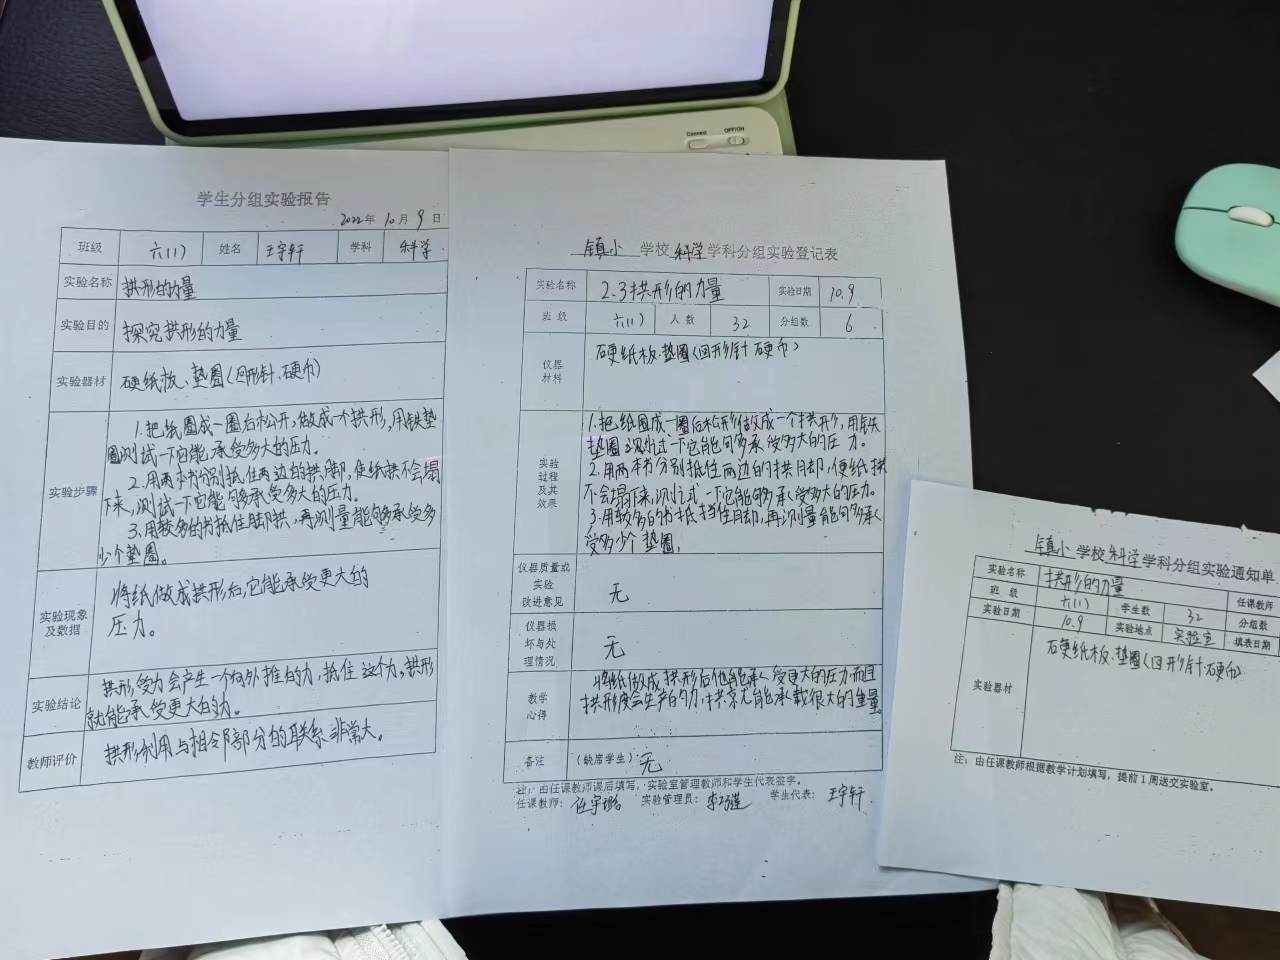 Connect OFF/ON
学生分组实验报告
2022年 10月 9日
班级 六(1) 姓名 王宇轩 学科 科学
实验名称 拱形的力量
实验目的 探究拱形的力量
实验器材 硬纸板、垫圈(回形针、硬币)
实验步骤
1.把纸圈成一圈后松开,做成一个拱形,用铁垫
圈测试一下它能承受多大的压力.
2.用两本书分别抵住两边的拱脚,使纸拱不会塌
下来,测试一下它能够承受多大的压力.
3.用较多的书抵住脚拱,再测量能够承受多
少个垫圈。
实验现象及数据
将纸做成拱形后,它能承受更大的
压力。
实验结论
拱形受力会产生一个向外推的力,抵住这个力,拱形
就能承受更大的力。
教师评价 拱形利用与相邻部分的联系非常大。
镇小 学校 科学 学科分组实验登记表
实验名称 2.3拱形的力量 实验日期 10.9
班级 六(1) 人数 32 分组数 6
仪器材料 硬纸板.垫圈(回形针 硬币)
实验过程及其效果
1.把纸圈成一圈后松形做成一个拱形,用铁
垫圈测试一下它能够承受多大的压力.
2.用两本书分别抵住两边的拱脚,使纸拱
不会塌下来,测试一下它能够承受多大的压力。
3.用较多的书抵挡住脚,再测量能够承
受多少个垫圈.
仪器质量或实验改进意见 无
仪器损坏与处理情况 无
教学心得
将纸做成拱形后他能承受更大的压力而且
拱形度会生产的力,拱就能承载很大的重量
备注 (缺席学生) 无
注:由任课教师课后填写,实验室管理教师和学生代表签字。
任课教师: 实验管理员: 学生代表: 王宇轩
镇小 学校 科学 学科分组实验通知单
实验名称 拱形的力量 任课教师
班级 六(1) 学生数 32 分组数
实验日期 10.9 实验地点 实验室 填表日期
实验器材 硬纸板.垫圈(回形针.硬币)
注:由任课教师根据教学计划填写,提前1周送交实验室。